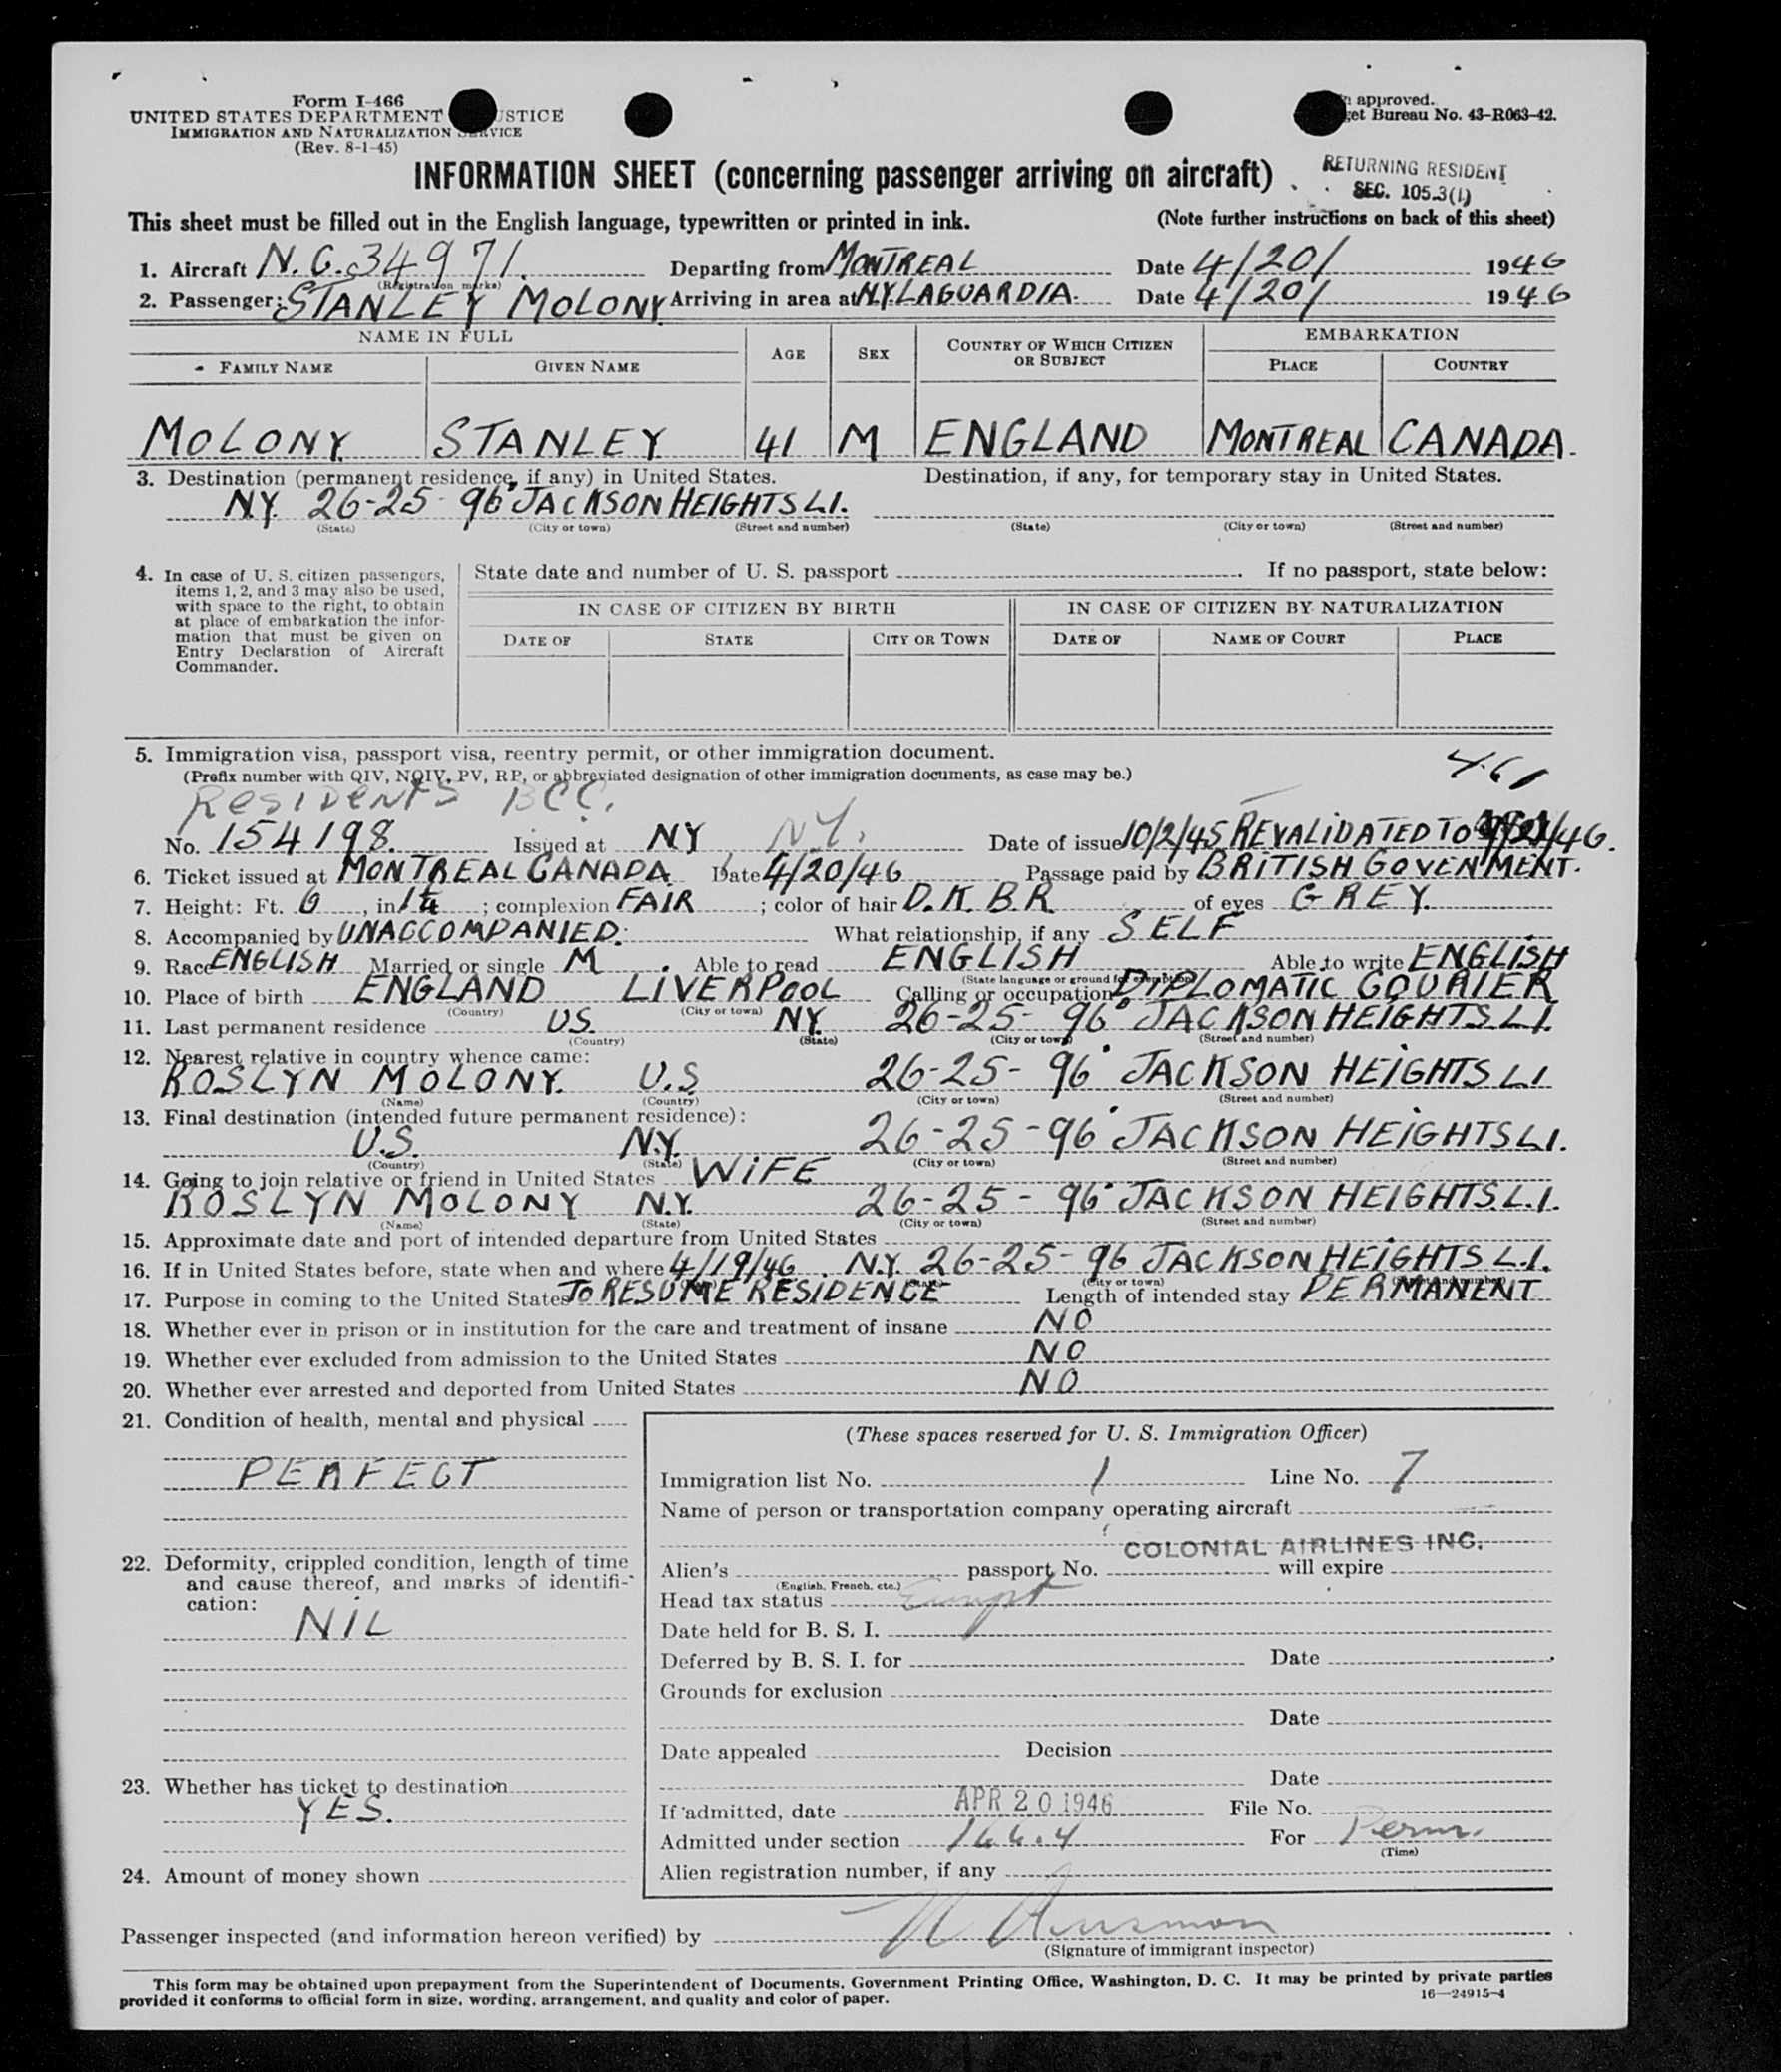 Form I-466
UNITED STATES DEPARTMENT USTICE
IMMIGRATION AND NATURALIZATION SERVICE
(Rev. 8-1-45)
approved.
get Bureau No. 43-R063-42.
INFORMATION SHEET (concerning passenger arriving on aircraft)
RETURNING RESIDENT
SEC. 105.3(1)
This sheet must be filled out in the English language, typewritten or printed in ink. (Note further instructions on back of this sheet)
1. Aircraft N.C. 34971. Departing from MONTREAL Date 4/20/ 1946
(Registration marks)
2. Passenger: STANLEY MOLONY Arriving in area at N.Y. LAGUARDIA. Date 4/20/ 1946
NAME IN FULL AGE SEX COUNTRY OF WHICH CITIZEN OR SUBJECT EMBARKATION
FAMILY NAME GIVEN NAME PLACE COUNTRY
MOLONY STANLEY 41 M ENGLAND MONTREAL CANADA.
3. Destination (permanent residence, if any) in United States. Destination, if any, for temporary stay in United States.
N.Y. 26-25- 96° JACKSON HEIGHTS L.I.
(State) (City or town) (Street and number) (State) (City or town) (Street and number)
4. In case of U. S. citizen passengers, items 1, 2, and 3 may also be used, with space to the right, to obtain at place of embarkation the information that must be given on Entry Declaration of Aircraft Commander.
State date and number of U. S. passport . If no passport, state below:
IN CASE OF CITIZEN BY BIRTH IN CASE OF CITIZEN BY NATURALIZATION
DATE OF STATE CITY OR TOWN DATE OF NAME OF COURT PLACE
5. Immigration visa, passport visa, reentry permit, or other immigration document. 461
(Prefix number with QIV, NQIV, PV, RP, or abbreviated designation of other immigration documents, as case may be.)
Residents BCC.
No. 154198. Issued at NY N.Y. Date of issue 10/2/45 REVALIDATED TO /46.
6. Ticket issued at MONTREAL CANADA Date 4/20/46 Passage paid by BRITISH GOVENMENT.
7. Height: Ft. 6, in 1¼; complexion FAIR; color of hair D.K. B.R. of eyes GREY.
8. Accompanied by UNACCOMPANIED. What relationship, if any SELF
9. Race ENGLISH Married or single M. Able to read ENGLISH Able to write ENGLISH
(State language or ground for exemption)
10. Place of birth ENGLAND LIVERPOOL Calling or occupation DIPLOMATIC COURIER
(Country) (City or town)
11. Last permanent residence US. NY. 26-25- 96° JACKSON HEIGHTS L.I.
(Country) (State) (City or town) (Street and number)
12. Nearest relative in country whence came:
ROSLYN MOLONY. U.S 26-25- 96° JACKSON HEIGHTS L.I
(Name) (Country) (City or town) (Street and number)
13. Final destination (intended future permanent residence):
U.S. N.Y. 26-25-96° JACKSON HEIGHTS L.I.
(Country) (State) (City or town) (Street and number)
14. Going to join relative or friend in United States WIFE
ROSLYN MOLONY N.Y. 26-25- 96° JACKSON HEIGHTS. L.I.
(Name) (State) (City or town) (Street and number)
15. Approximate date and port of intended departure from United States
16. If in United States before, state when and where 4/19/46. N.Y. 26-25- 96 JACKSON HEIGHTS L.I.
(City or town) (Street and number)
17. Purpose in coming to the United States TO RESUME RESIDENCE Length of intended stay PERMANENT
18. Whether ever in prison or in institution for the care and treatment of insane NO
19. Whether ever excluded from admission to the United States NO
20. Whether ever arrested and deported from United States NO
21. Condition of health, mental and physical
PERFECT
22. Deformity, crippled condition, length of time
and cause thereof, and marks of identifi-
cation:
NIL
23. Whether has ticket to destination
YES.
24. Amount of money shown
(These spaces reserved for U. S. Immigration Officer)
Immigration list No. 1 Line No. 7
Name of person or transportation company operating aircraft
COLONIAL AIRLINES INC.
Alien's passport No. will expire
(English, French, etc.)
Head tax status Exempt
Date held for B. S. I.
Deferred by B. S. I. for Date
Grounds for exclusion
Date
Date appealed Decision
Date
If admitted, date APR 20 1946 File No.
Admitted under section 166.4 For Perm.
(Time)
Alien registration number, if any
Passenger inspected (and information hereon verified) by
(Signature of immigrant inspector)
This form may be obtained upon prepayment from the Superintendent of Documents, Government Printing Office, Washington, D. C. It may be printed by private parties
provided it conforms to official form in size, wording, arrangement, and quality and color of paper. 16—24915-4